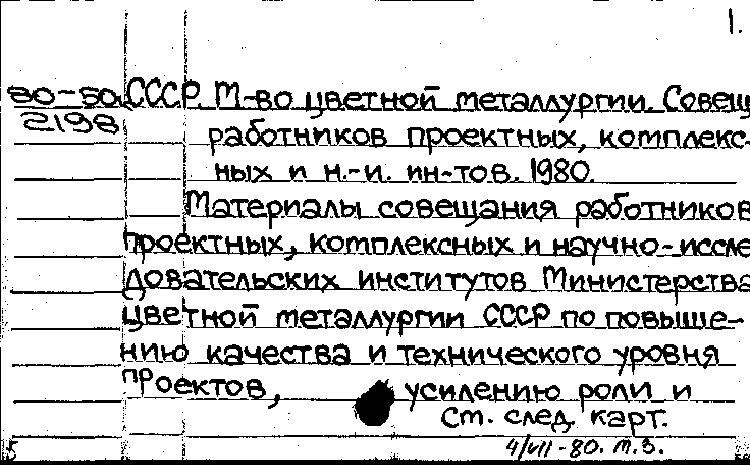 1.
80-50 СССР. М-во цветной металлургии. Совещ
2198 работников проектных, комплекс-
ных и н.-и. ин-тов. 1980.
Материалы совещания работников
проектных, комплексных и научно-иссле
довательских институтов Министерства
цветной металлургии СССР по повыше-
нию качества и технического уровня
проектов, усилению роли и
см. след. карт.
5 4/VII-80. т.з.